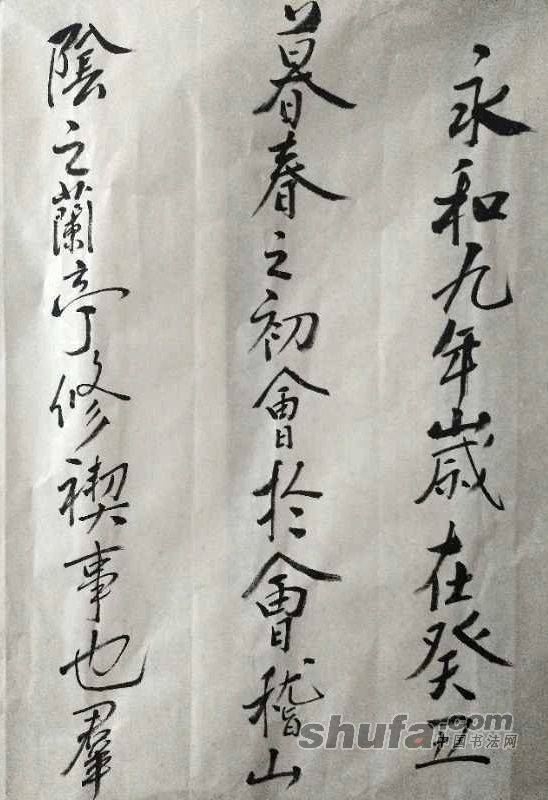 永和九年歲在癸丑
暮春之初會於會稽山
陰之蘭亭修禊事也羣
shufa.com
中国书法网